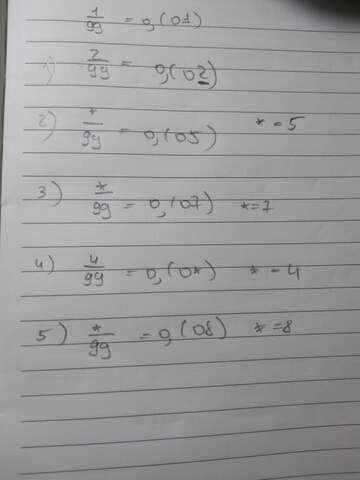 1/99 = 0,(01)
1) 2/99 = 0,(02)
2) */99 = 0,(05) * = 5
3) */99 = 0,(07) *=7
4) 4/99 = 0,(0*) * = 4
5) */99 = 0,(08) * =8